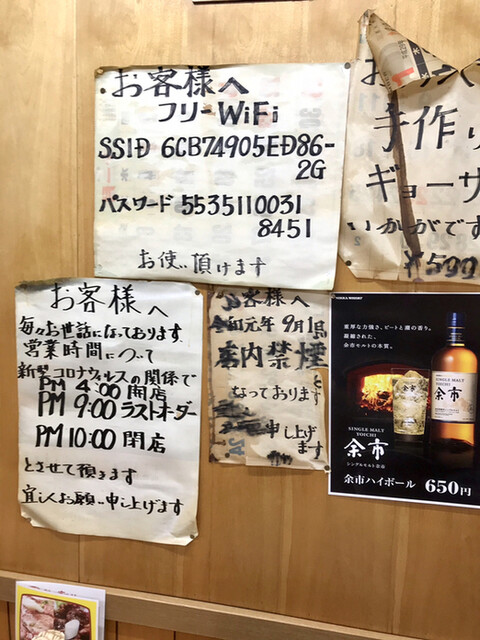 お客様へ
フリーWiFi
SSID 6CB74905ED86-
2G
パスワード 5535110031
8451
お使い頂けます
手作り
ギョーザ
いかがです
¥500
お客様へ
毎々お世話になっております
営業時間について
新型コロナウィルスの関係で
PM 4:00 開店
PM 9:00 ラストオーダー
PM 10:00 閉店
とさせて頂きます
宜しくお願い申し上げます
お客様へ
令和元年9月1日
案内禁煙
と
なっております
申し上げ
ます
NIKKA WHISKY
重厚な力強さ、ピートと潮の香り。
凝縮された、
余市モルトの本質。
SINGLE MALT
YOICHI
余市
シングルモルト余市
SINGLE MALT
YOICHI
余市
余市ハイボール 650円